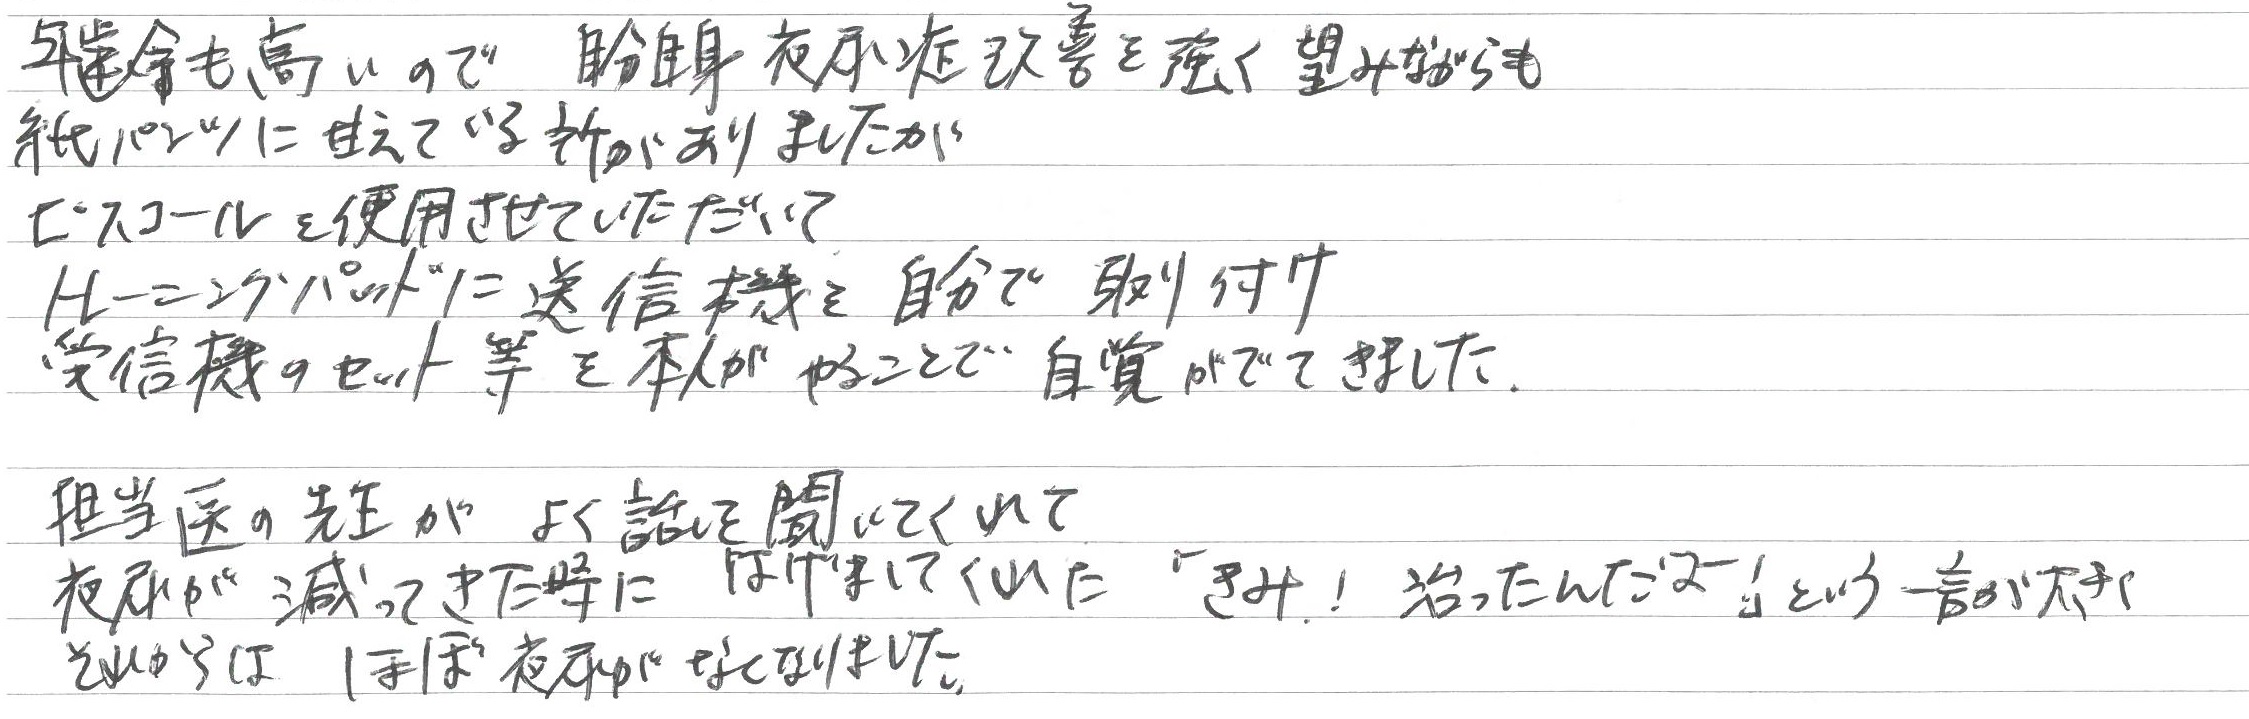 年齢も高いので 自分自身 夜尿症改善を強く望みながらも
紙パンツに甘えている所がありましたが
ピスコールを使用させていただいて
トレーニングパッドに送信機を自分で取り付け
受信機のセット等を本人がやることで自覚がでてきました.
担当医の先生が よく話しを聞いてくれて
夜尿が減ってきた時に はげましてくれた 「きみ! 治ったんだヨー」という一言が大きく
それからは ほぼ夜尿がなくなりました。